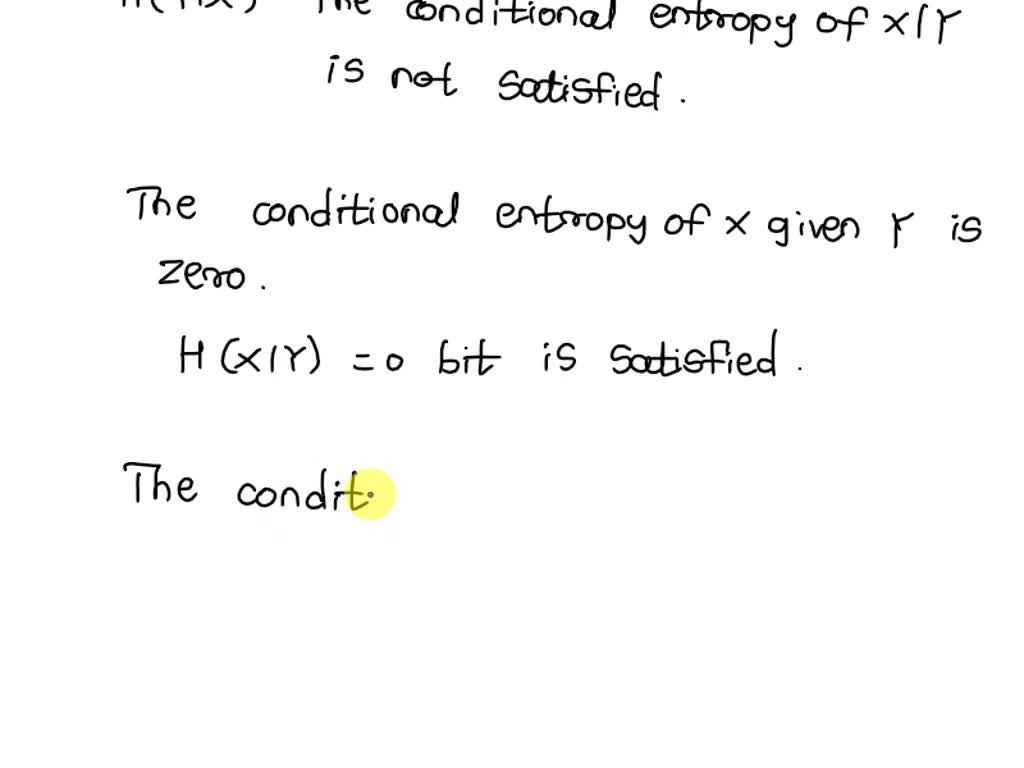 H(Y|X) The conditional entropy of X|Y
is not satisfied.
The conditional entropy of X given Y is
zero.
H(X|Y) = 0 bit is satisfied.
The condit